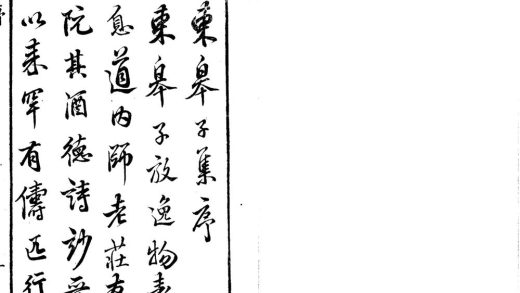 東皋子集序
東皋子放逸物表
息道内師老莊友
阮其酒德詩妙
以来罕有儔匹行